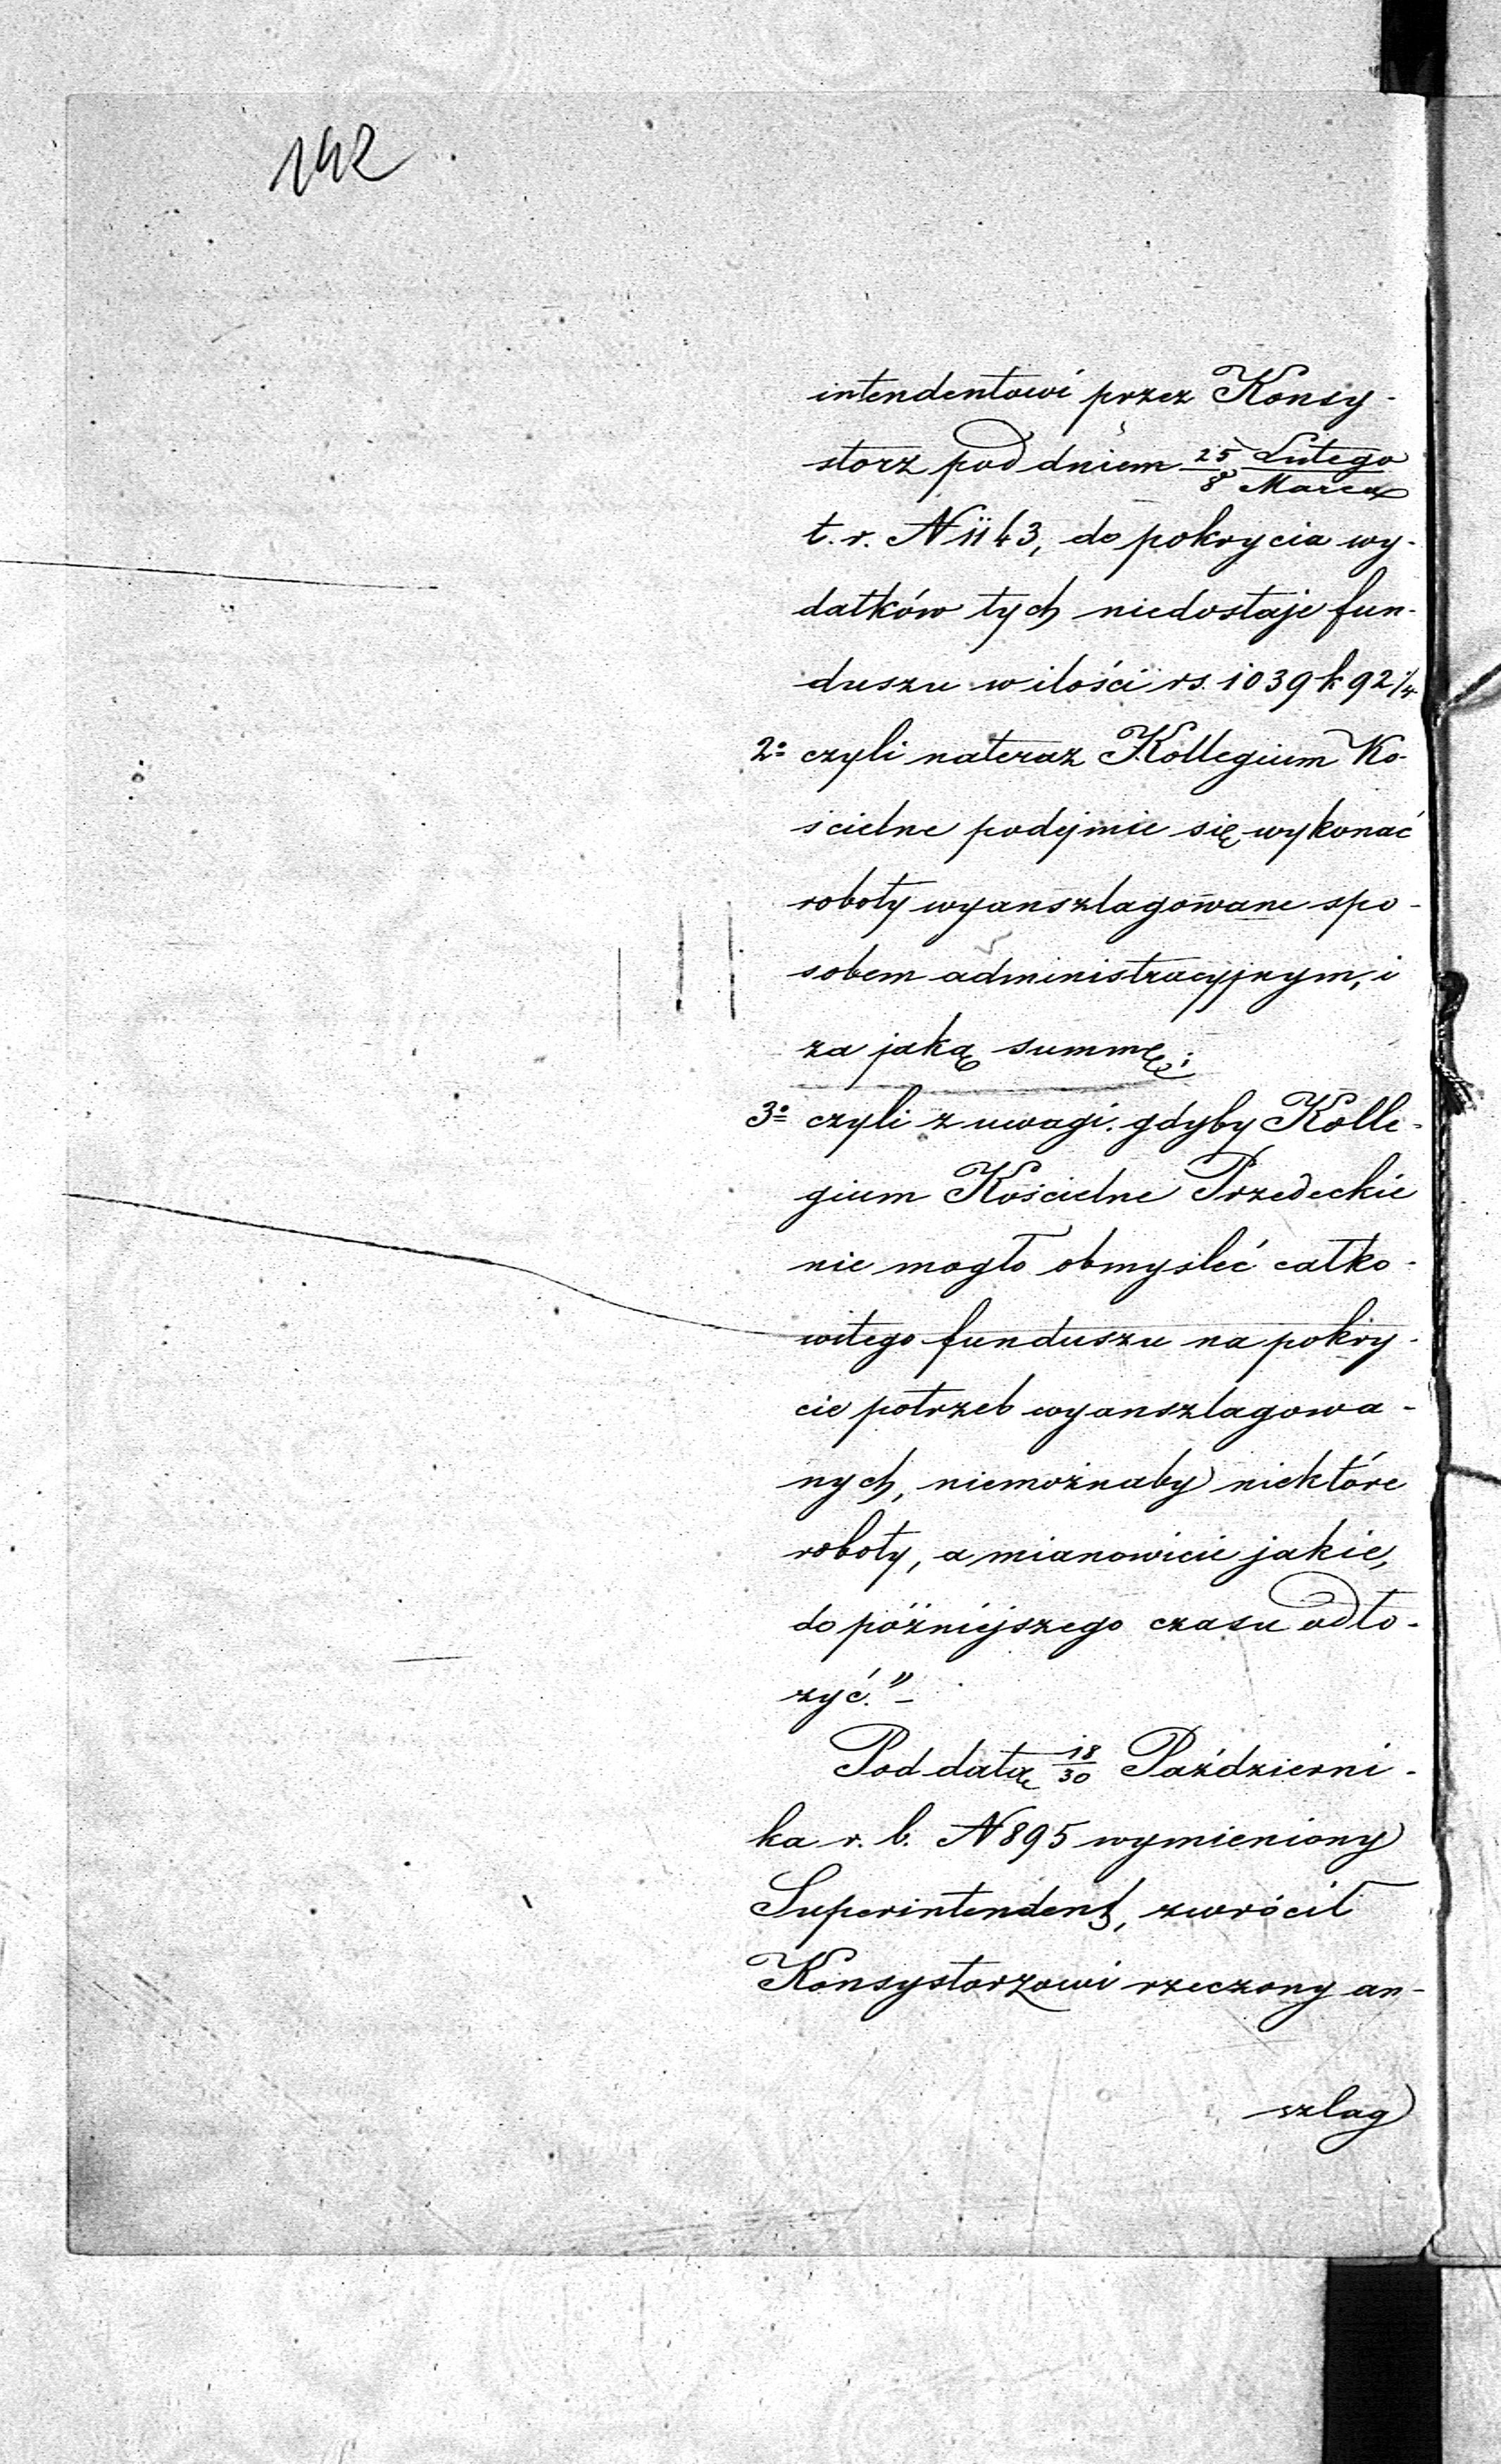 142
intendentowi przez Konsy-
storz pod dniem 25 Lutego / 8 Marca
t. r. N 1143, do pokrycia wy-
datków tych niedostaje fun-
duszu w ilości rs. 1039 k 92 1/4
2o czyli nateraz Kollegium Ko-
ścielne podejmie się wykonać
roboty wyanszlagowane spo-
sobem administracyjnym, i
za jaką summę;
3o czyli z uwagi. gdyby Kolle-
gium Kościelne Przedeckie
nie mogło obmyśleć całko-
witego funduszu na pokry-
cie potrzeb wyanszlagowa-
nych, niemożnaby niektóre
roboty, a mianowicie jakie,
do późniejszego czasu odło-
żyć."-
Pod datą 18/30 Październi-
ka r. b. N 895 wymieniony
Superintendent, zwrócił
Konsystorzowi rzeczony an-
szlag